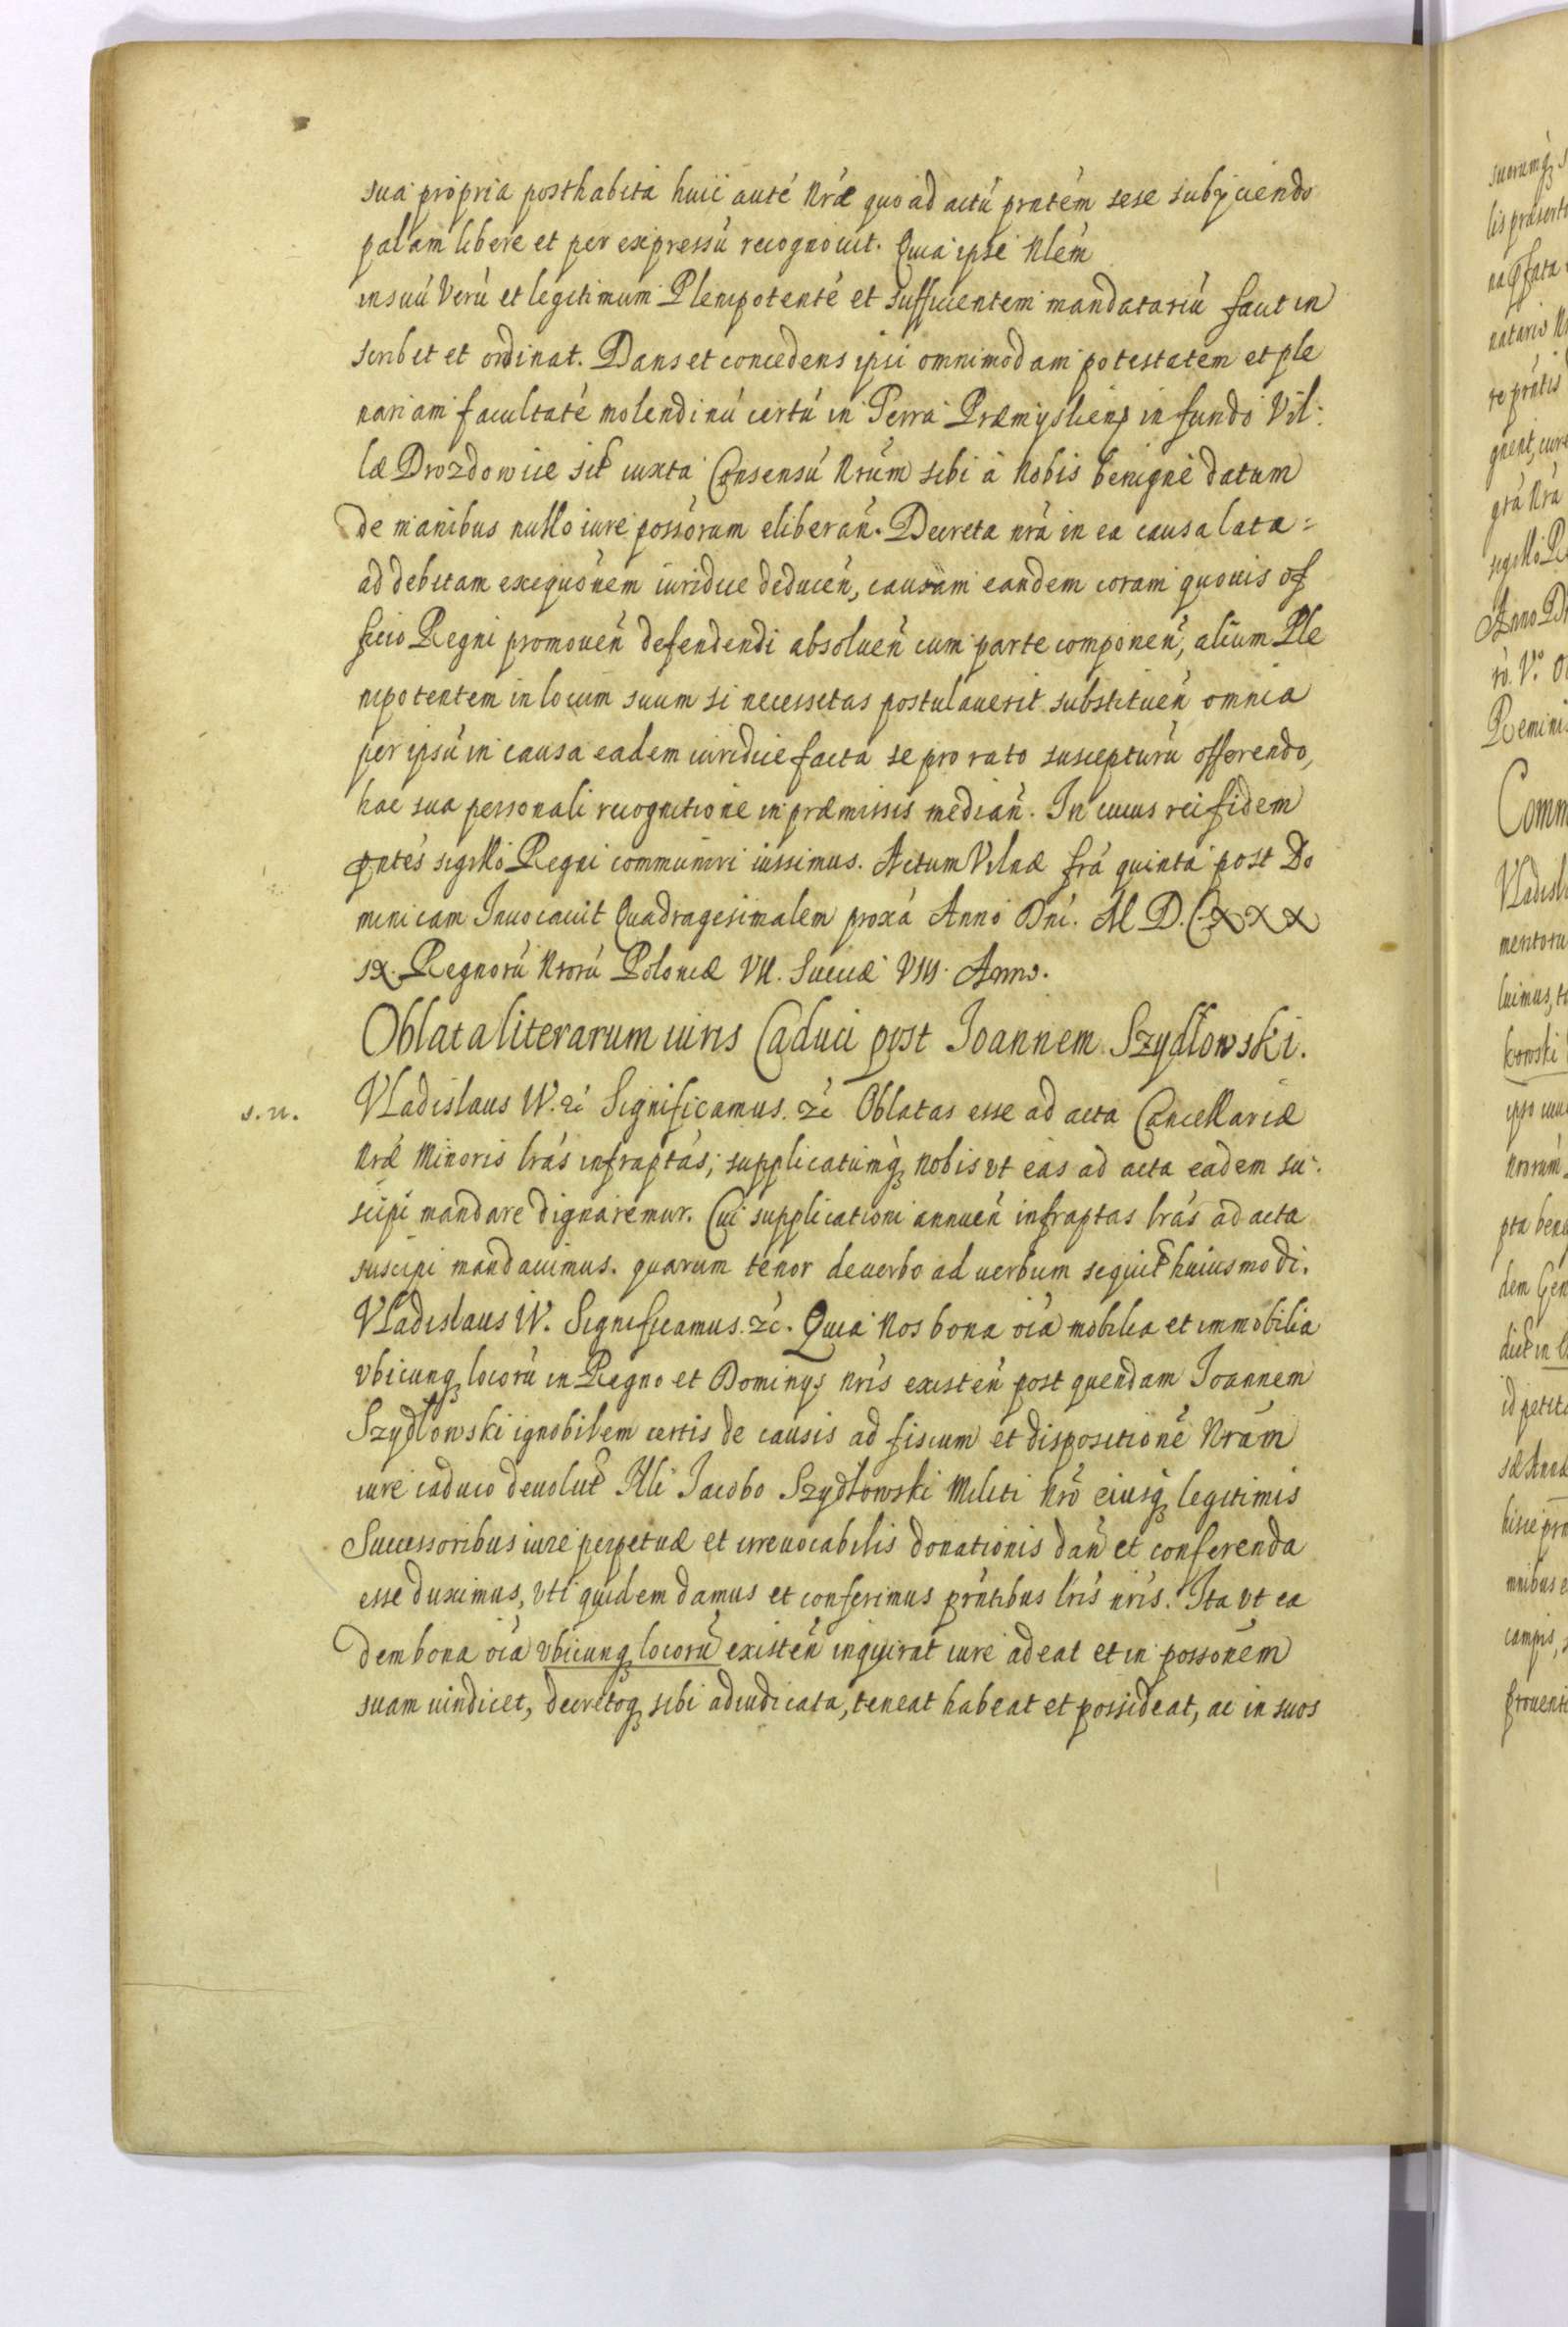 sua propria posthabita huic auté Nræ quo ad actú prntém sese subijciendo
palam libere et per expressú recognouit. Quia ipse Nlem
in suú Verú et legitimum Plenipotenté et sufficientem mandatariú facit in
scribit et ordinat. Dans et concedens ipsi omnimodam potestatem et ple
nariam facultaté molendinú certú in Terra Præmyslien in fundo Vil:
læ Drozdowice sit iuxta Consensú Nrúm sibi á Nobis benigné datum
de manibus nullo iure possorum eliberan. Decreta nrá in ea causa lata=
ad debitam exequónem iuridice deducen, causam eandem coram quouis of
ficio Regni promouen defendendi absoluen cum parte componen, alium Ple
nipotentem in locum suum si necessitas postulauerit substituen omnia
per ipsú in causa eadem iuridice facta se pro rato suscepturú offerendo,
hac sua personali recognitione in præmissis median. In cuius rei fidem
pntés sigillo Regni communiri iussimus. Actum Vilnæ frá quinta post Do
minicam Inuocauit Quadragesimalem proxá Anno Dní. M D. C XXX
IX. Regnorú Nrorú Poloniæ VII. Sueciæ VIII. Anno.
Oblata literarum iuris Caduci post Ioannem Szydłowski.
s. n. Vladislaus IV. zc Significamus. zc Oblatas esse ad acta Cancellariæ
Nræ Minoris lrás infraptás; supplicatumq nobis vt eas ad acta eadem su:
scipi mandare dignaremur. Cui supplicationi annuen infraptas lrás ad acta
suscipi mandauimus. quarum tenor de uerbo ad uerbum sequit huiusmodi.
Vladislaus IV. Significamus. zc. Quia Nos bona oiá mobilia et immobilia
vbicunq locorú in Regno et Dominijs nrís existen post quendam Ioannem
Szydłowski ignobilem certis de causis ad fiscum et dispositioné Nrám
iure caduco deuolut Nli Iacobo Szydłowski Militi Nro eiusq legitimis
Successoribus iure perpetuæ et irreuocabilis donationis dan et conferenda
esse duximus, vti quidem damus et conferimus prntibus lrís nrís. Ita vt ea
dem bona oiá vbicunq locorú existen inquirat iure adeat et in possonem
suam uindicet, decretoq sibi adiudicata, teneat habeat et possideat, ac in suos